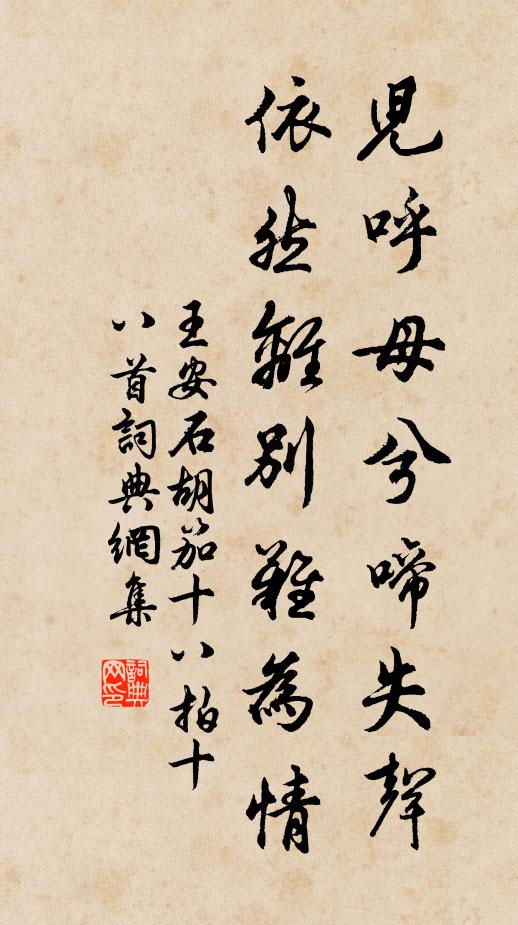 兒呼母兮啼失聲
依然離別難為情
王安石胡笳十八拍十
八首詞典網集
詞典
网印